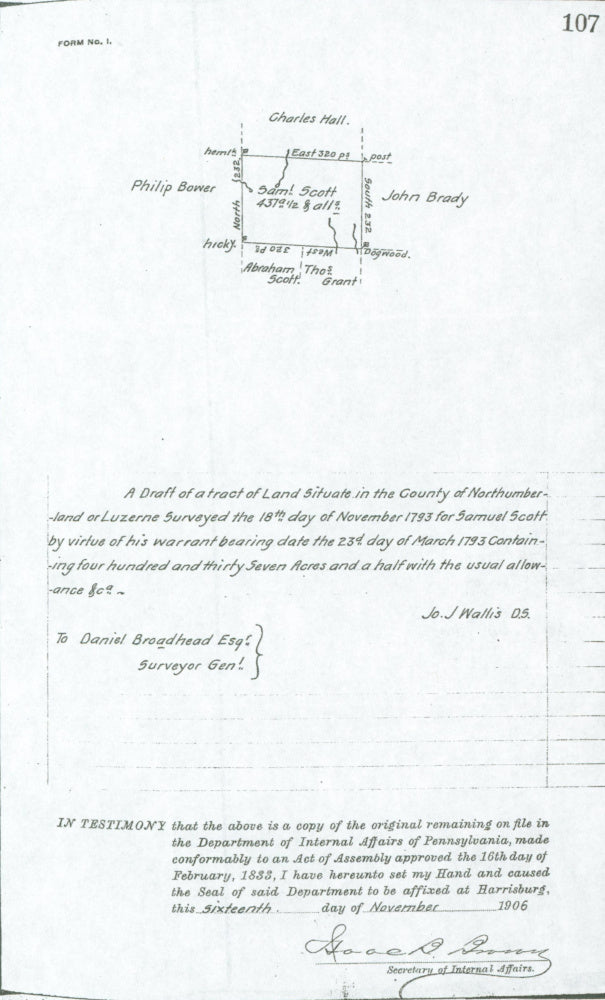 107
FORM No. 1.
Charles Hall.
hemlk East 320 ps post
North 232
Philip Bower
Saml. Scott
437a 1/2 & alls.
South 232
John Brady
hicky. West 320 ps. Dogwood.
Abraham Scott.
Thos. Grant
A Draft of a tract of Land Situate in the County of Northumber-
-land or Luzerne Surveyed the 18th day of November 1793 for Samuel Scott
by virtue of his warrant bearing date the 23d day of March 1793 Contain-
-ing four hundred and thirty Seven Acres and a half with the usual allow-
-ance &ca ~
Jo. J Wallis D.S.
To Daniel Broadhead Esqr.
Surveyor Genl.
IN TESTIMONY that the above is a copy of the original remaining on file in
the Department of Internal Affairs of Pennsylvania, made
conformably to an Act of Assembly approved the 16th day of
February, 1833, I have hereunto set my Hand and caused
the Seal of said Department to be affixed at Harrisburg,
this Sixteenth day of November 1906
Isaac B. Brown
Secretary of Internal Affairs.